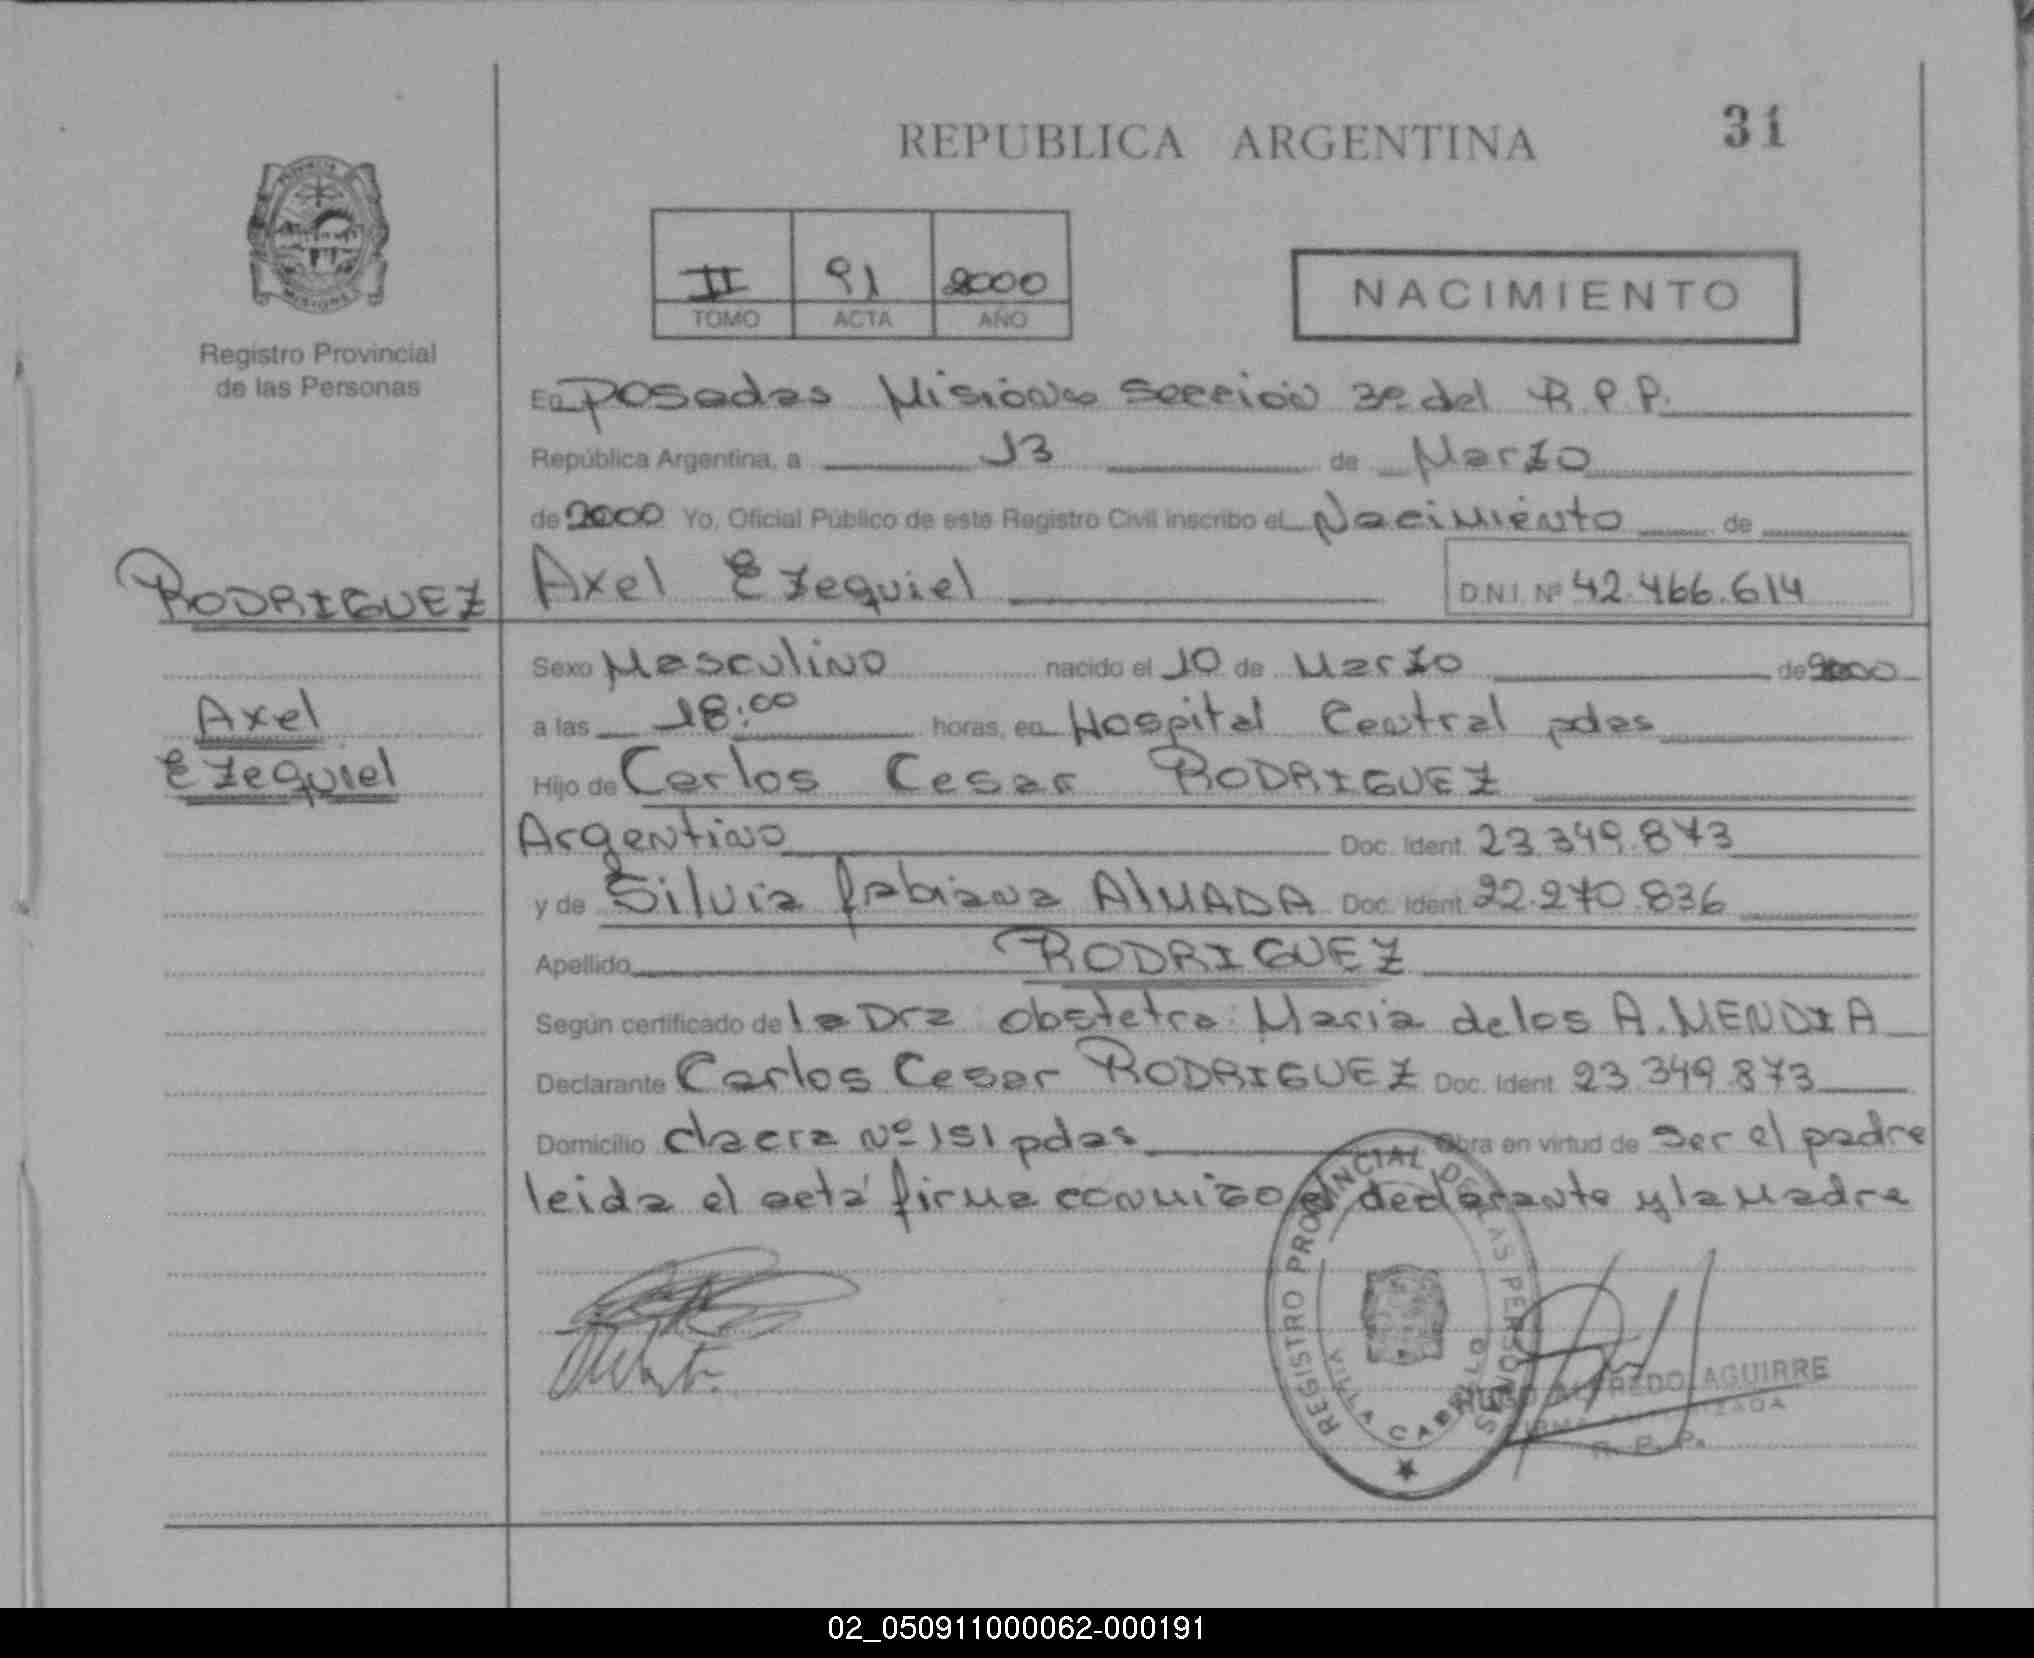 REPUBLICA ARGENTINA
31
II 91 2000
TOMO ACTA AÑO
NACIMIENTO
Registro Provincial
de las Personas
En Posadas Misiones Sección 3ª del R.P.P.
República Argentina, a 13 de Marzo
de 2000 Yo, Oficial Público de este Registro Civil inscribo el Nacimiento de
RODRIGUEZ
Axel Ezequiel
Axel Ezequiel D.N.I. Nº 42.466.614
Sexo Masculino nacido el 10 de Marzo de 2000
a las 18:00 horas, en Hospital Central pdas
Hijo de Carlos Cesar RODRIGUEZ
Argentino Doc. Ident. 23.349.873
y de Silvia fabiana AlMADA Doc. Ident. 22.270.836
Apellido RODRIGUEZ
Según certificado de la Dra obstetra: Maria de los A. MENDIA
Declarante Carlos Cesar RODRIGUEZ Doc. Ident. 23.349.873
Domicilio Nº 151 pdas Obra en virtud de ser el padre
leida el acta firma conmigo el declarante y la madre
REGISTRO PROVINCIAL DE LAS PERSONAS
VILLA CABELLO
HUGO ALFREDO AGUIRRE
FIRMA AUTORIZADA
R. P. P.
02_050911000062-000191